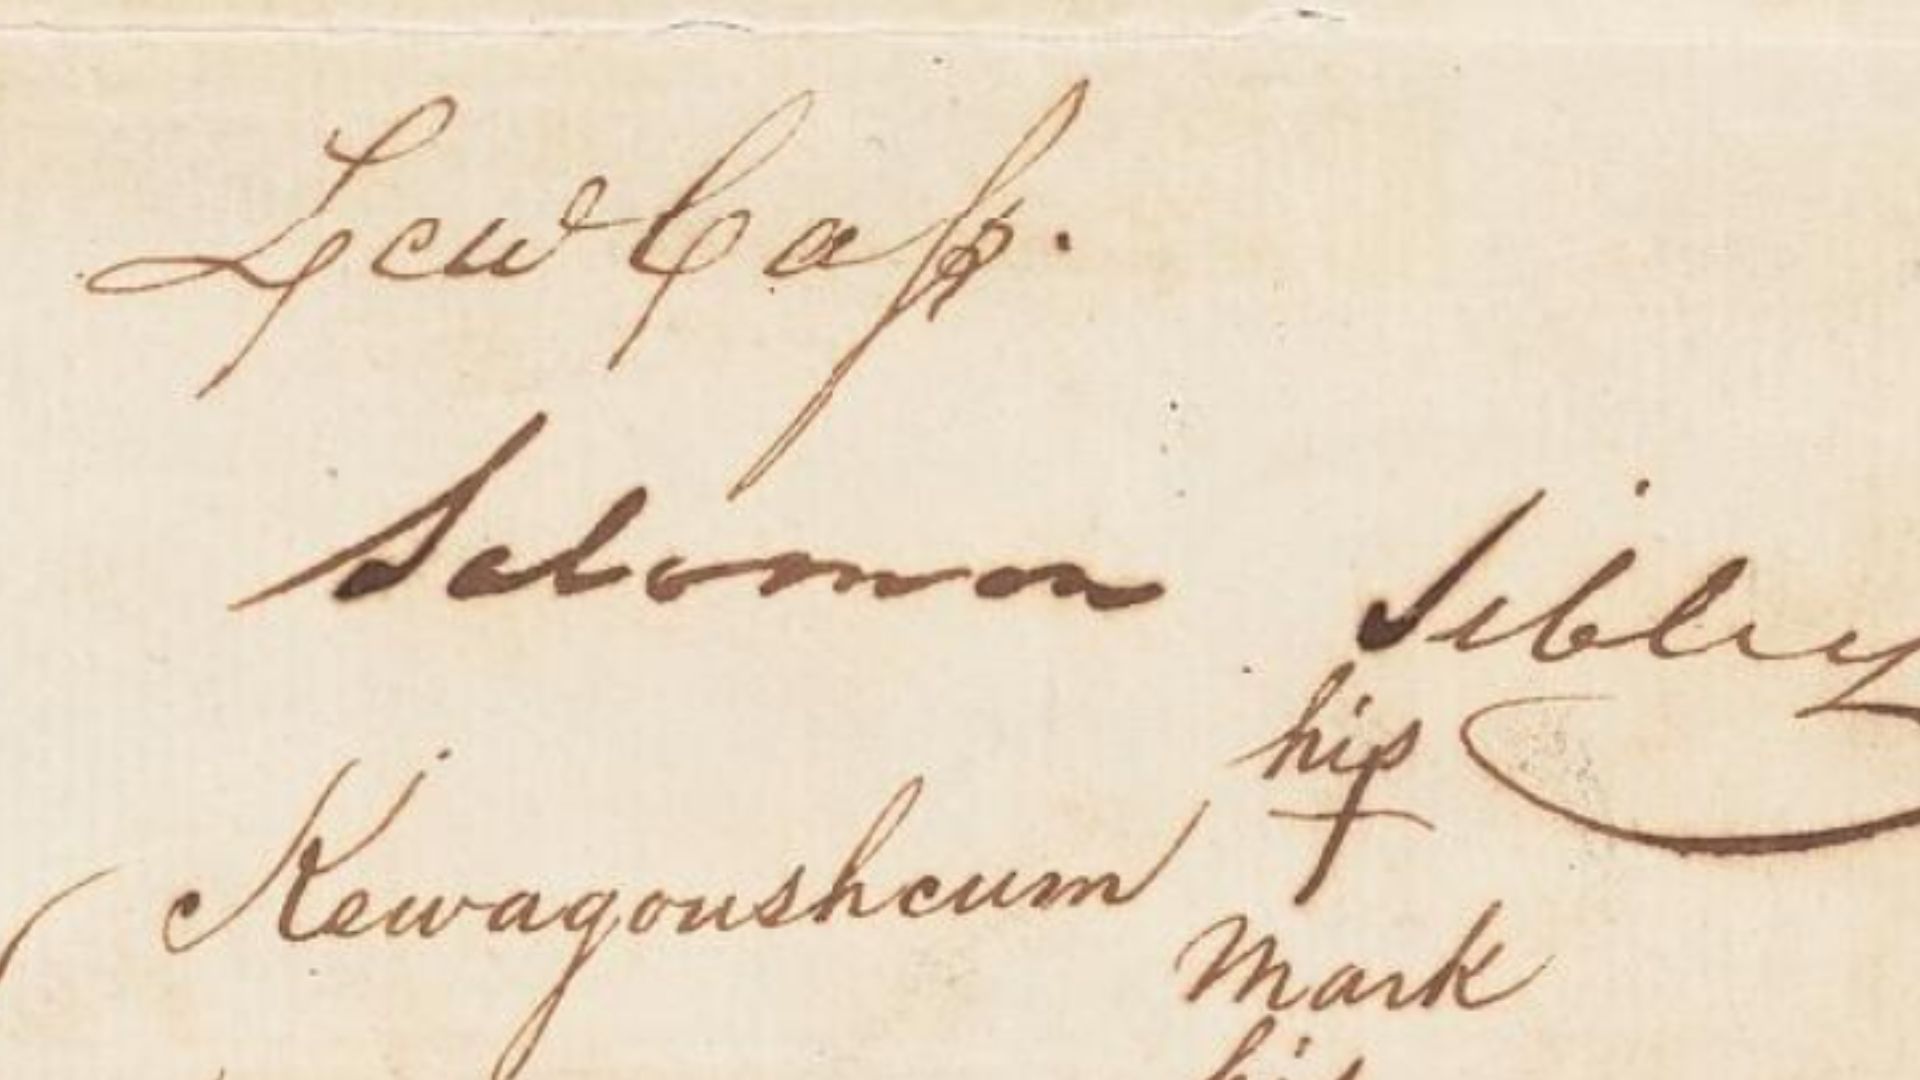 Lew Cass.
Solomon Sibley
his
Kewagoushcum
mark
his